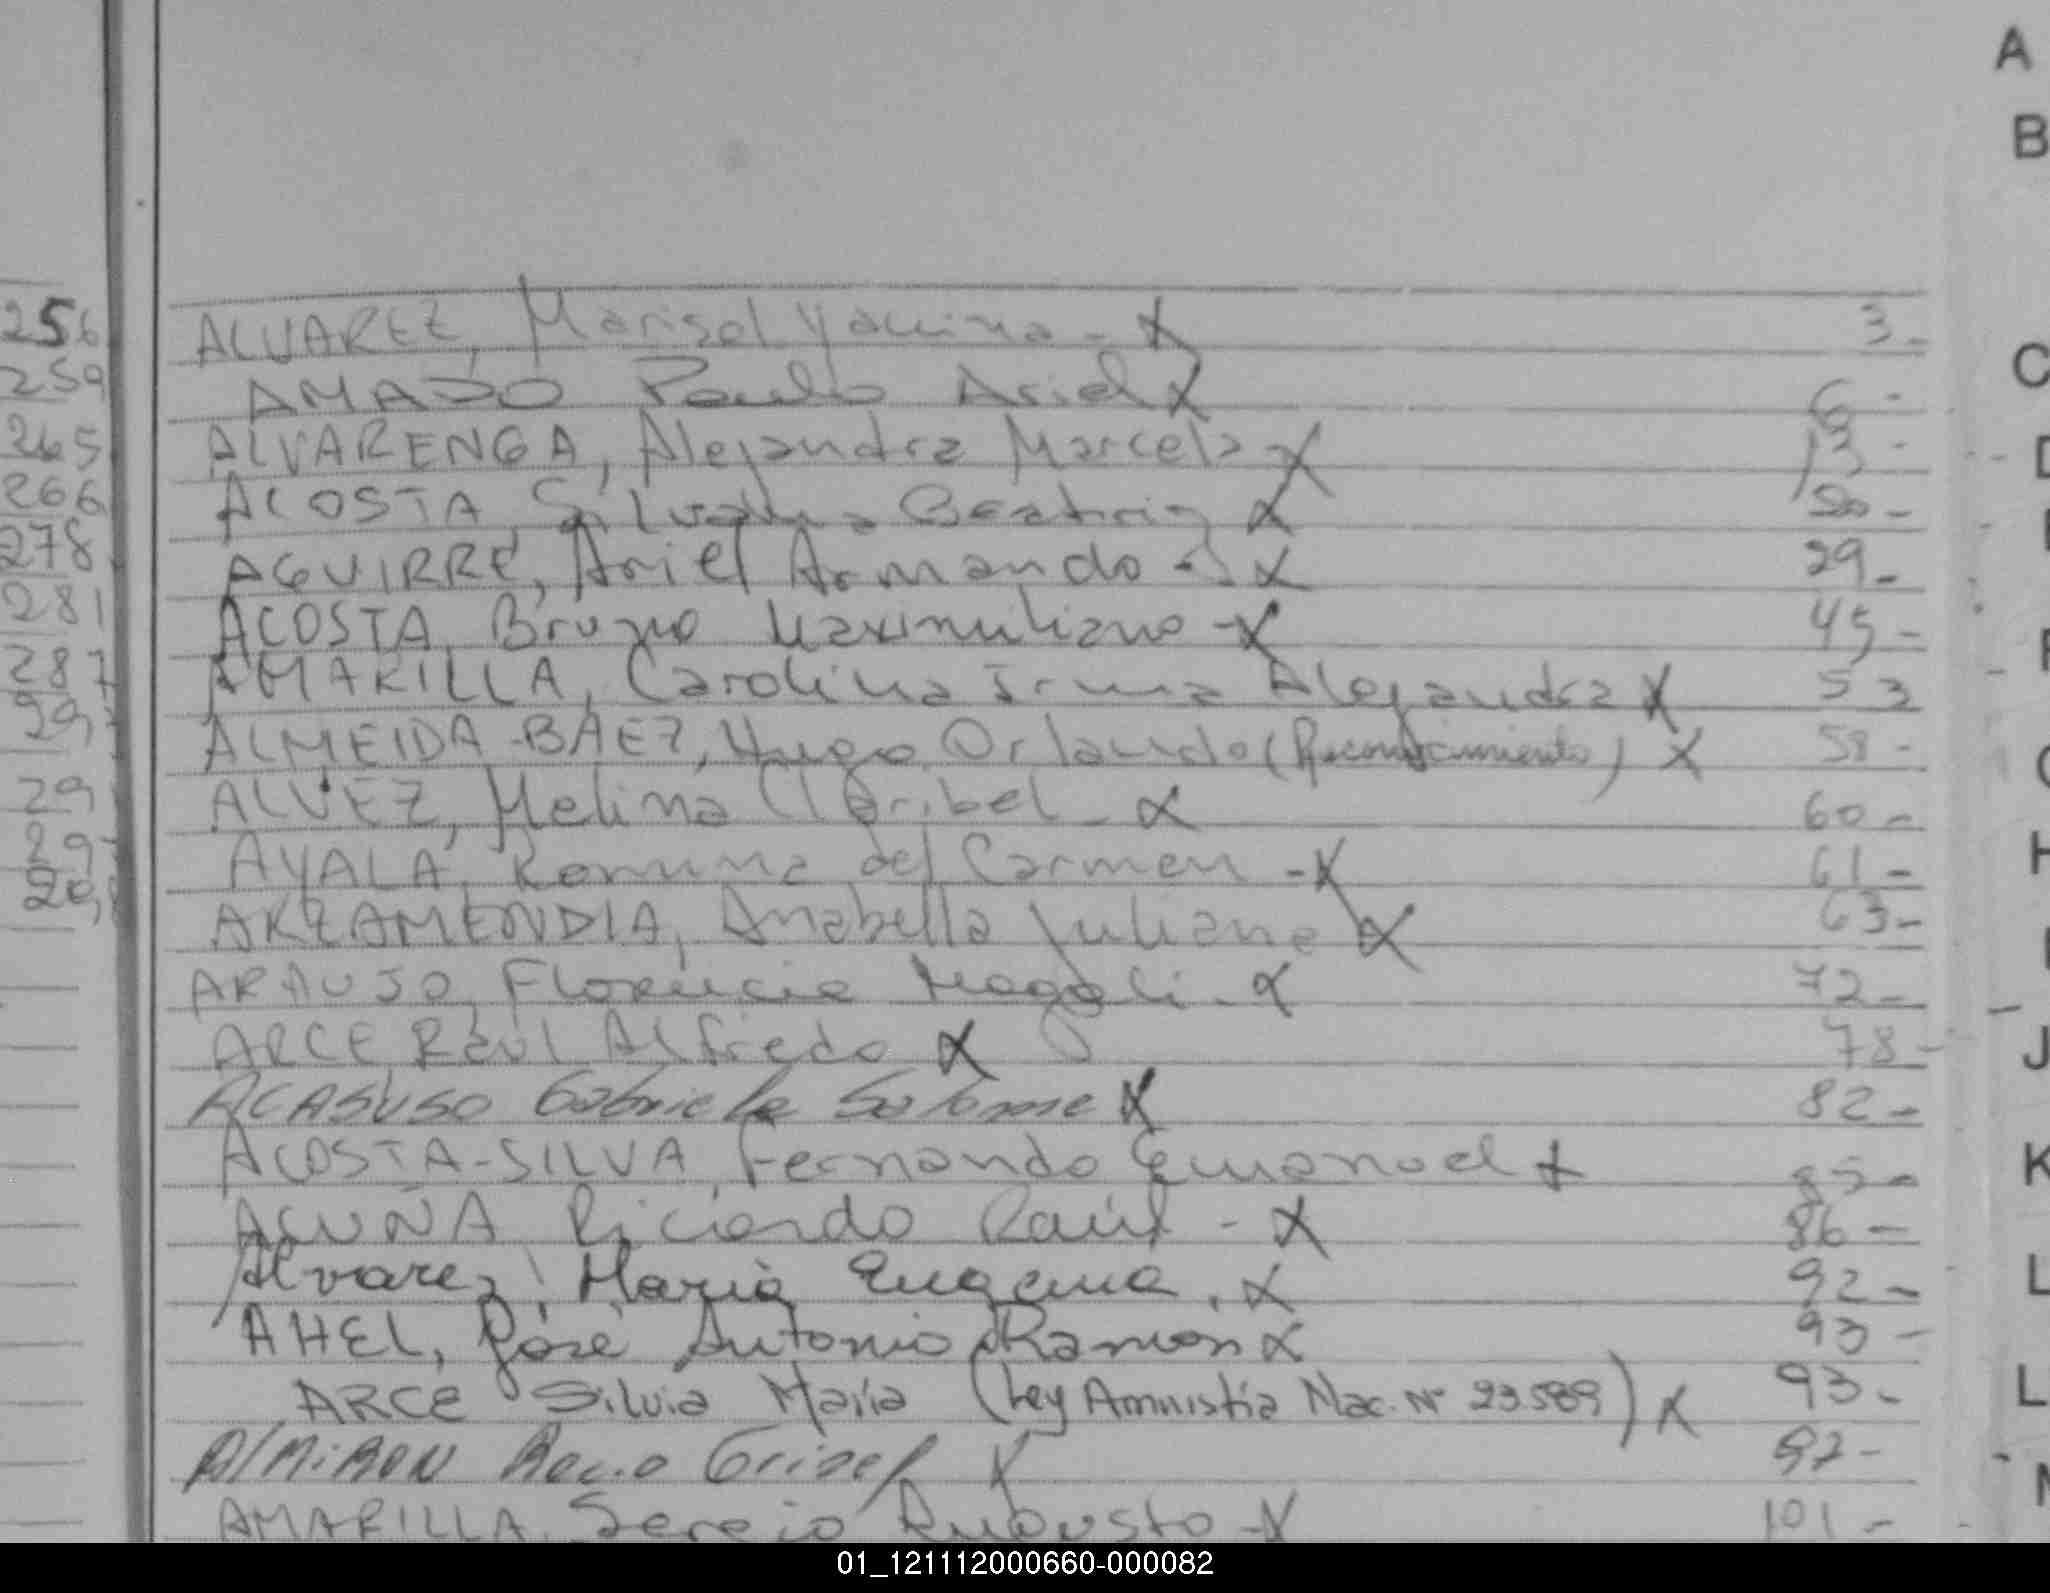 A
B
256 ALVAREZ, Marisol Yanina - X 3-
259 AMADO Paulo Ariel X 6-
C
265 ALVARENGA, Alejandra Marcela X 13-
D
266 ACOSTA, Silvana Beatriz X 20-
278 AGUIRRE, Ariel Armando - X 29-
281 ACOSTA, Bruno Maximiliano - X 45-
287 AMARILLA, Carolina Irma Alejandra X 53
ALMEIDA-BAEZ, Hugo Orlando (Reconocimiento) X 58-
29 ALVEZ, Melina Claribel - X 60-
29 AYALA, Romina del Carmen - X 61-
H
ARZAMENDIA, Anabella Juliana X 63-
ARAUJO, Florencia Magali - X 72-
ARCE Raúl Alfredo X 78-
J
ACASUSO Gabriela Salome X 82-
ACOSTA-SILVA, Fernando Emanuel X 85-
K
ACUÑA Ricardo Raúl - X 86-
Alvarez, Maria Eugenia. X 92-
L
AHEL, José Antonio Ramón X 93-
ARCE Silvia María (Ley Amnistía Nac. Nº 23.589) X 93-
ALMIRON Rocio Grisel X 97-
AMARILLA, Sergio Augusto - X 101-
01_121112000660-000082